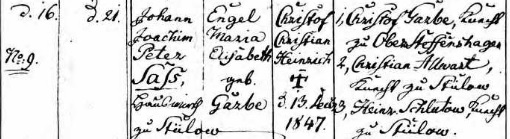 d. 16. d. 21. Johann Engel Christof 1, Christof Garbe, Knecht
Joachim Maria Christian zu Ober Steffenshagen
No 9. Peter Elisabeth Heinrich 2, Christian Allwart,
Sass geb. † Knecht zu Stülow
Hauswirth Garbe d. 13. 3, Heinr. Schlutow, Knecht
zu Stülow 1847. zu Stülow.